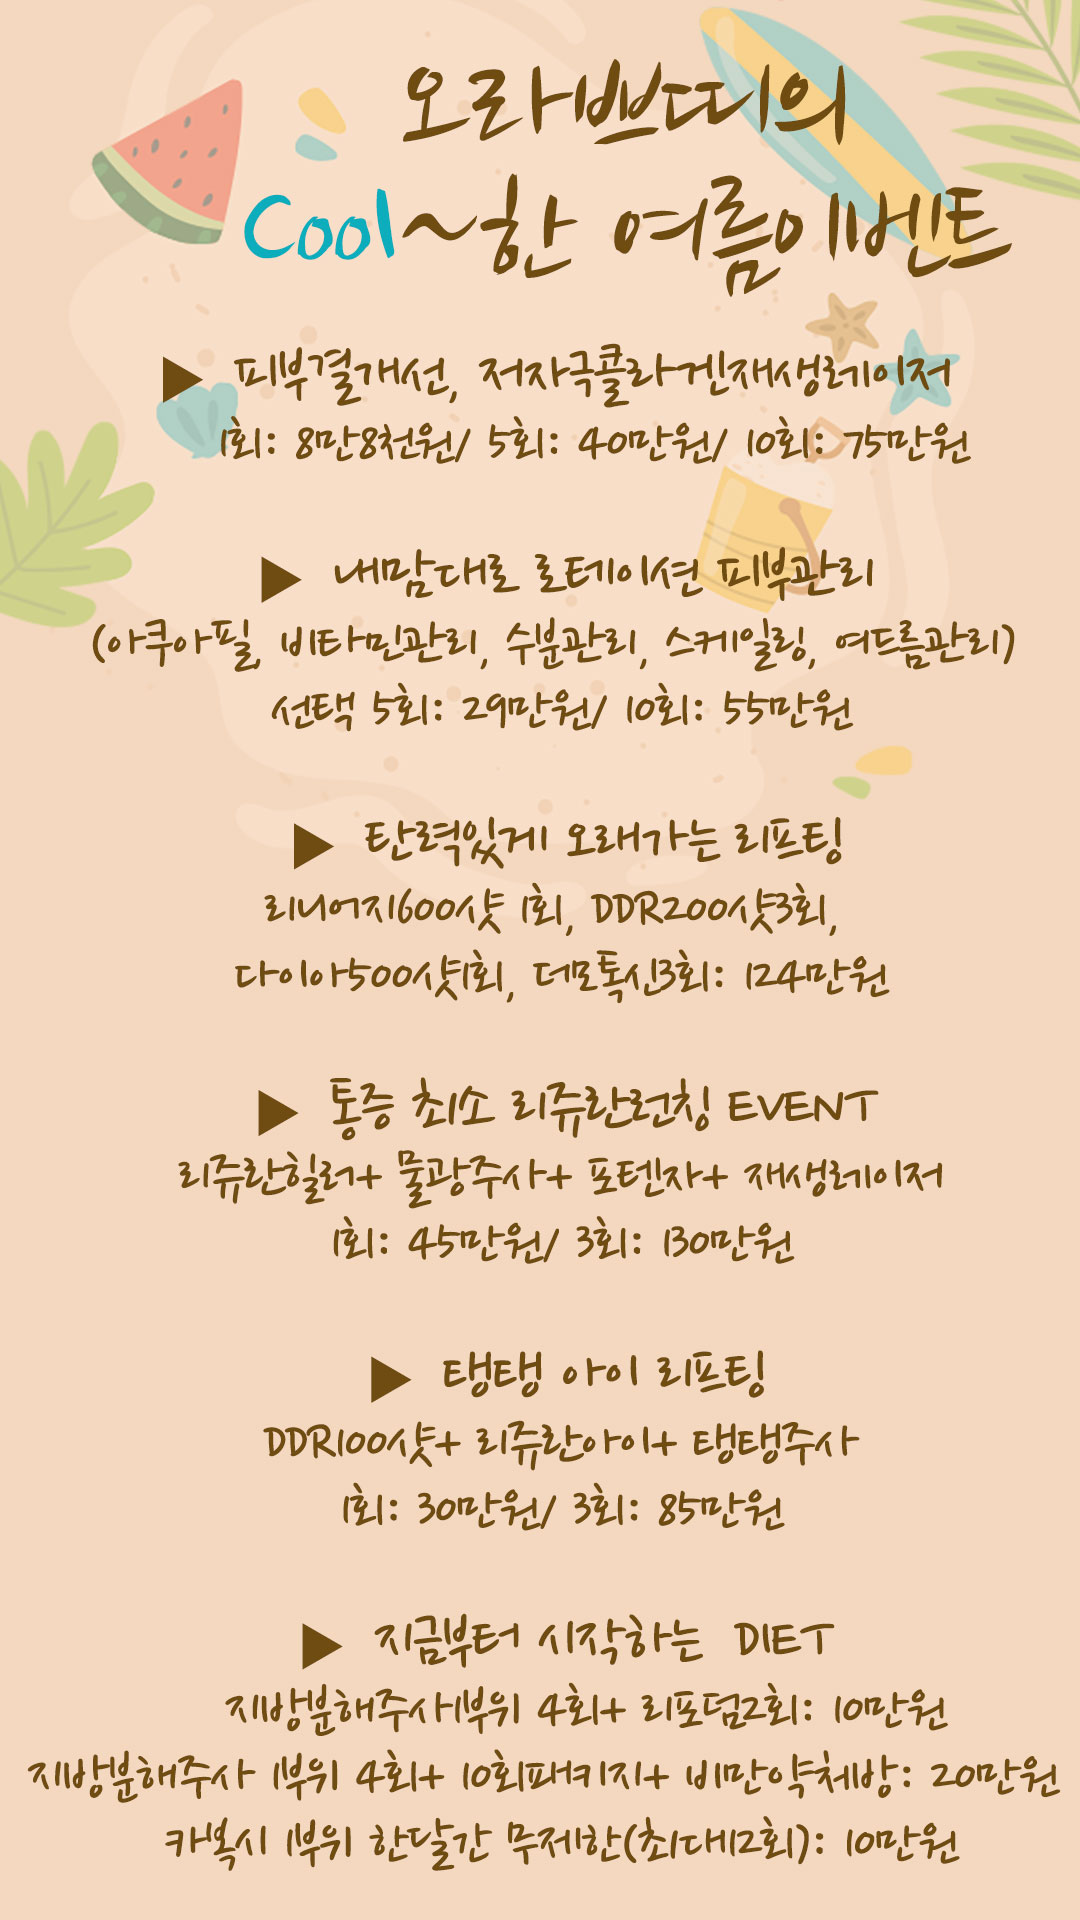 오라쁘띠의
Cool~한 여름이벤트
▶ 피부결개선, 저자극콜라겐재생레이저
1회: 8만8천원/ 5회: 40만원/ 10회: 75만원
▶ 내맘대로 로테이션 피부관리
(아쿠아필, 비타민관리, 수분관리, 스케일링, 여드름관리)
선택 5회: 29만원/ 10회: 55만원
▶ 탄력있게 오래가는 리프팅
리니어지600샷 1회, DDR200샷3회,
다이아500샷1회, 더모톡신3회: 124만원
▶ 통증 최소 리쥬란런칭 EVENT
리쥬란힐러+ 물광주사+ 포텐자+ 재생레이저
1회: 45만원/ 3회: 130만원
▶ 탱탱 아이 리프팅
DDR100샷+ 리쥬란아이+ 탱탱주사
1회: 30만원/ 3회: 85만원
▶ 지금부터 시작하는 DIET
지방분해주사1부위 4회+ 리포덤2회: 10만원
지방분해주사 1부위 4회+ 10회패키지+ 비만약처방: 20만원
카복시 1부위 한달간 무제한(최대12회): 10만원